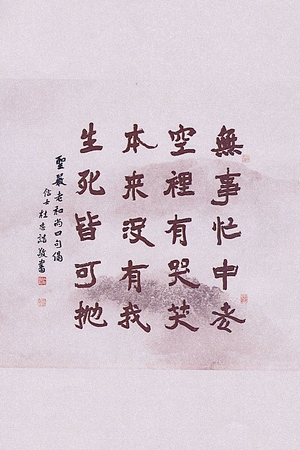 無事忙中老
空裡有哭笑
本来沒有我
生死皆可抛
聖嚴老和尚四句偈
信士杜忠誥敬書